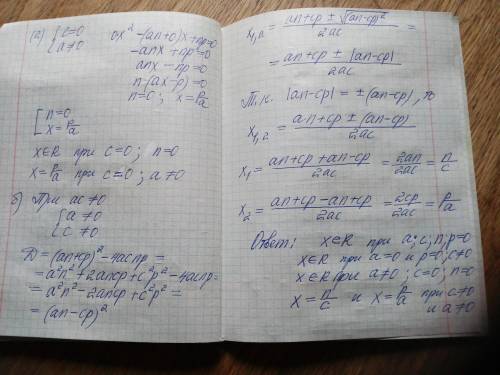 (2) { c=0
a≠0
0x² -(an+0)x+np=0
-anx + np=0
anx - np=0
n(ax-p)=0
n=0; x=p/a
[ n=0
x=p/a
x∈R при c=0; n=0
x=p/a при c=0; a≠0
б) При ac≠0
{ a≠0
c≠0
D=(an+cp)²-4acnp=
=a²n²+2ancp+c²p²-4acnp=
=a²n²-2ancp+c²p²=
=(an-cp)²
x₁,₂ = (an+cp ± √(an-cp)²)/2ac =
= (an+cp ± |an-cp|)/2ac
Т.к. |an-cp| = ±(an-cp), то
x₁,₂ = (an+cp ± (an-cp))/2ac
x₁ = (an+cp+an-cp)/2ac = 2an/2ac = n/c
x₂ = (an+cp-an+cp)/2ac = 2cp/2ac = p/a
Ответ: x∈R при a;c;n;p=0
x∈R при a=0 и p=0; c≠0
x∈R при a≠0; c=0; n=0
x=n/c и x=p/a при c≠0
и a≠0